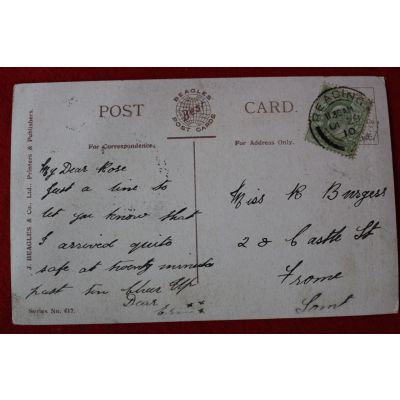 BEAGLES'
BEST
POST CARDS
POST CARD.
For Correspondence.
For Address Only.
J. BEAGLES & Co., Ltd., Printers & Publishers.
READING
10
My Dear Rose
Just a line to
let you know that
I arrived quite
safe at twenty minutes
past ten Cheer Up
Dear
Miss R Burgess
2 Castle St
Frome
Somt
Series No. 617.